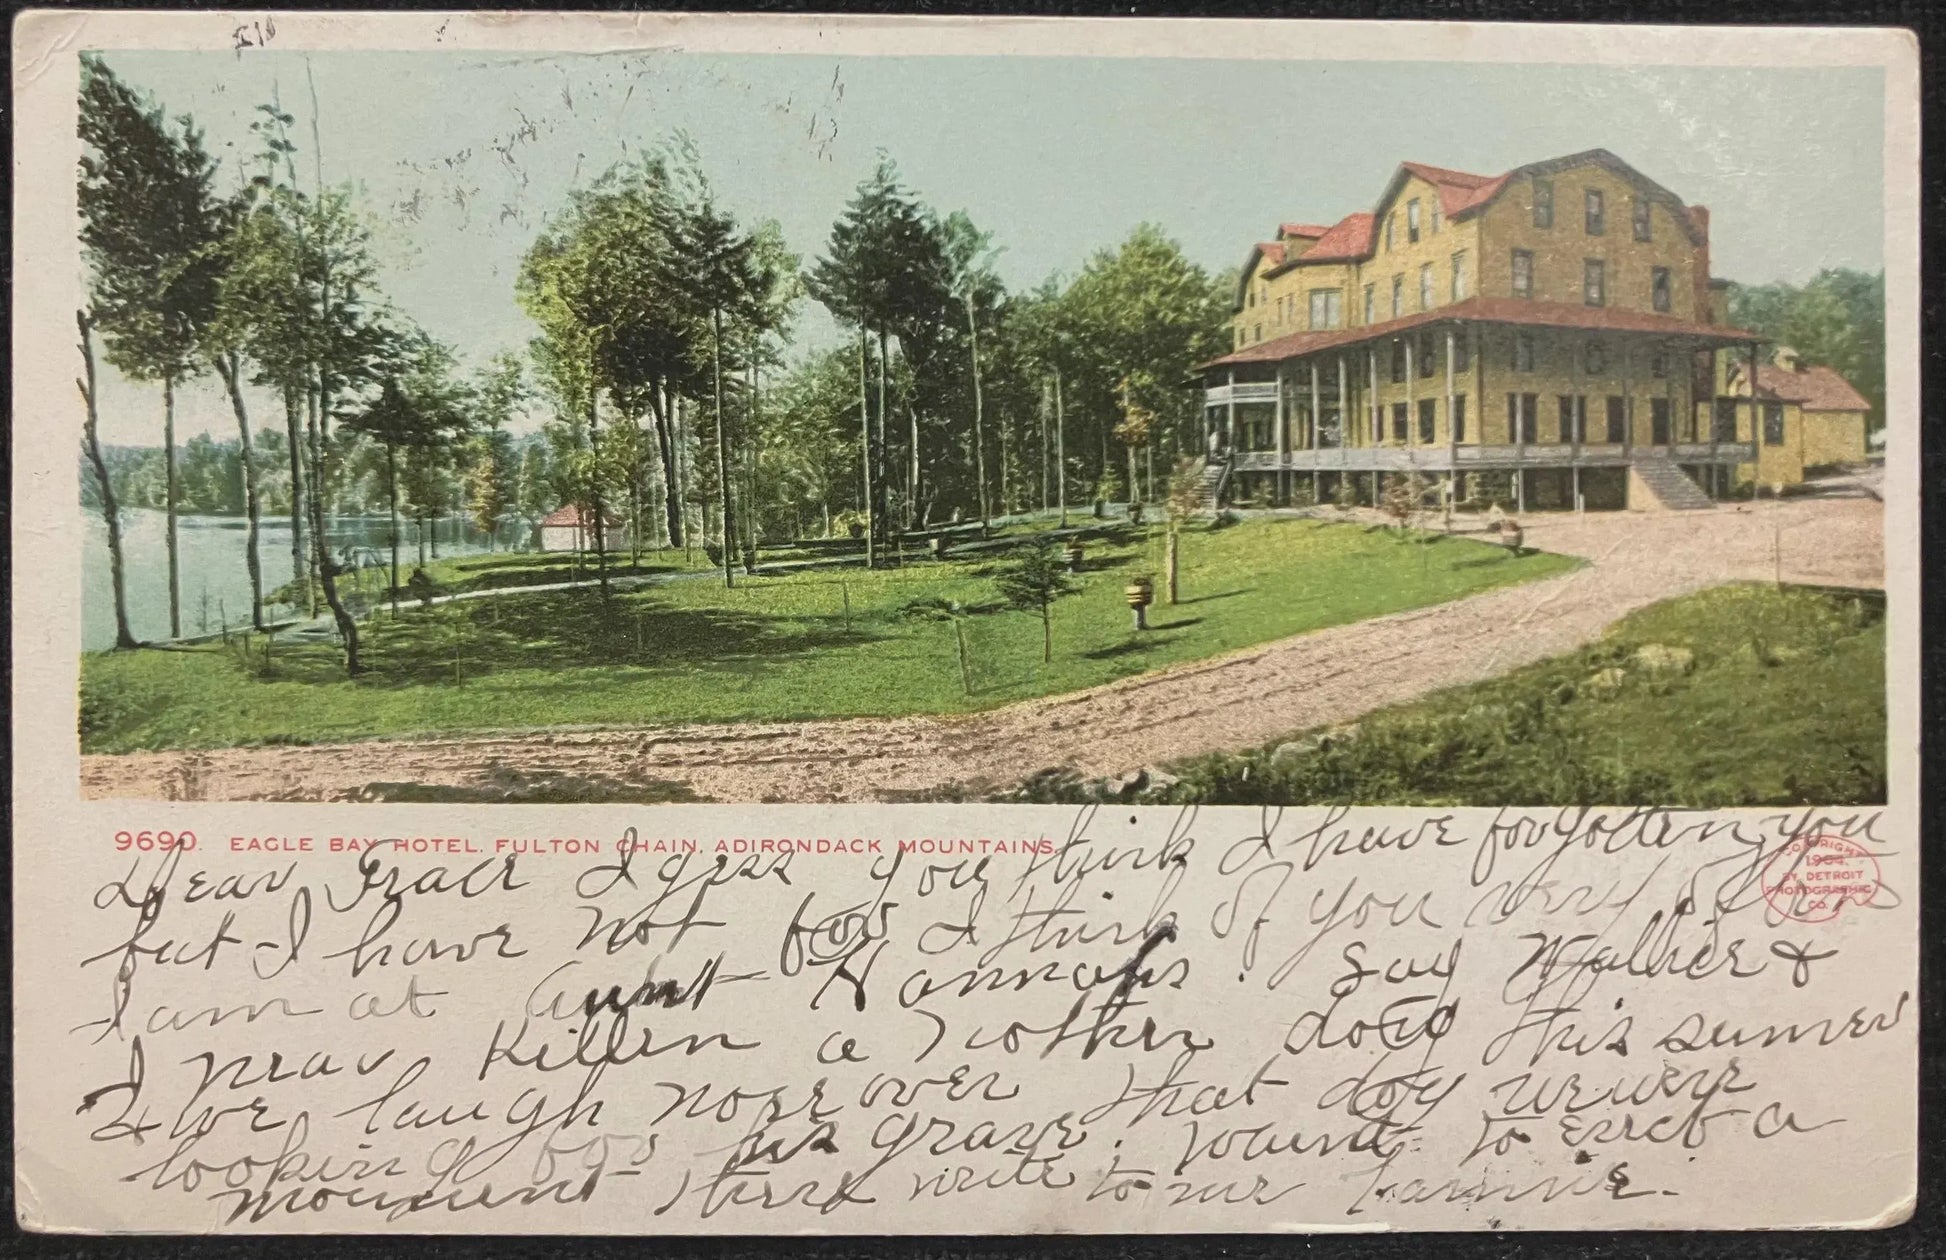 9690. EAGLE BAY HOTEL, FULTON CHAIN, ADIRONDACK MOUNTAINS.
COPYRIGHT 1904 BY DETROIT PHOTOGRAPHIC CO.
Dear Grace I gess you think I have forgotten you
but I have not for I think of you very often
I am at Aunt Hannahs. Say Wallice &
I near Killen a nother dog this summer
& we laugh nose over that dog we were
looking for his grave. want to erect a
monument there write to me Fannie.